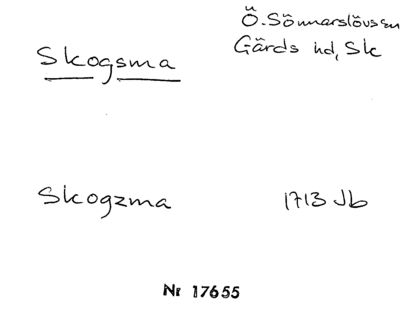 Skogsma
Ö. Sönnarslövs sn
Gärds hd, Sk
Skogzma
1713 Jb
Nr 17655